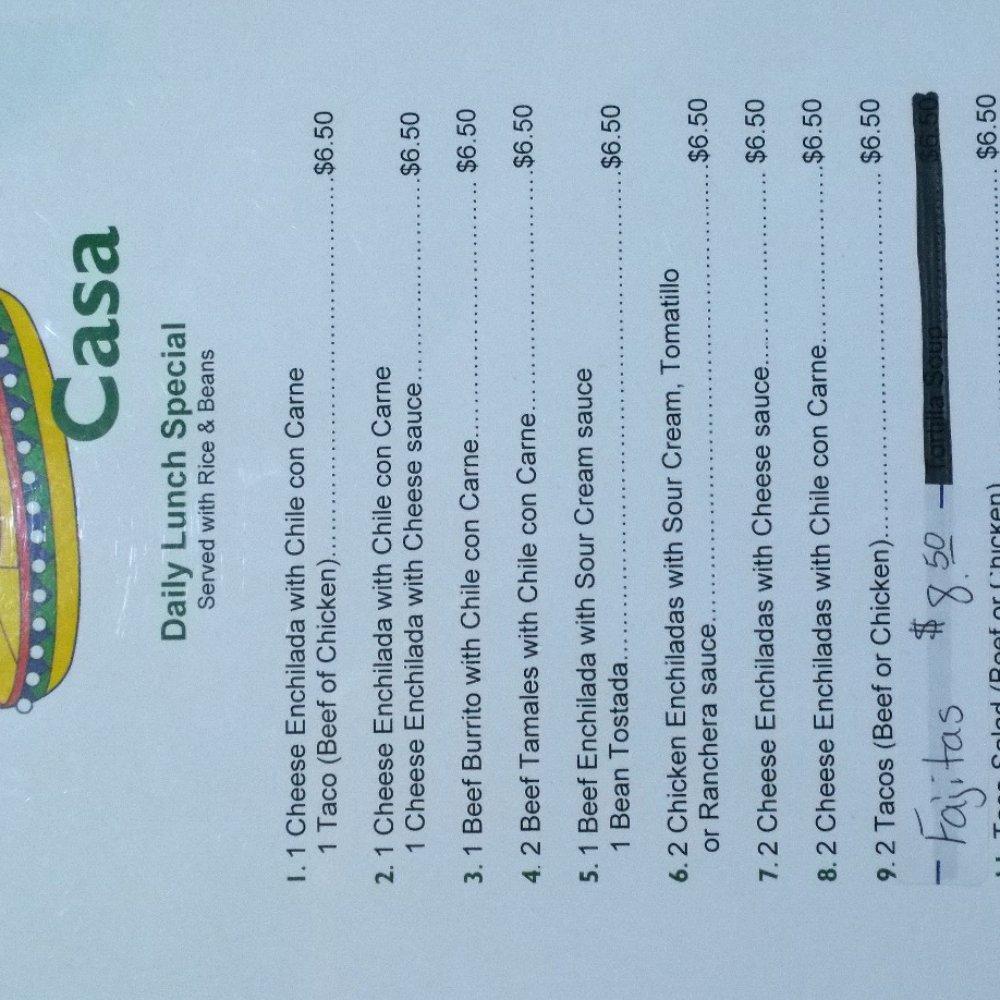 Casa
Daily Lunch Special
Served with Rice & Beans
1. 1 Cheese Enchilada with Chile con Carne
1 Taco (Beef of Chicken)..............................$6.50
2. 1 Cheese Enchilada with Chile con Carne
1 Cheese Enchilada with Cheese sauce..............................$6.50
3. 1 Beef Burrito with Chile con Carne..............................$6.50
4. 2 Beef Tamales with Chile con Carne..............................$6.50
5. 1 Beef Enchilada with Sour Cream sauce
1 Bean Tostada..............................$6.50
6. 2 Chicken Enchiladas with Sour Cream, Tomatillo
or Ranchera sauce..............................$6.50
7. 2 Cheese Enchiladas with Cheese sauce..............................$6.50
8. 2 Cheese Enchiladas with Chile con Carne..............................$6.50
9. 2 Tacos (Beef or Chicken)..............................$6.50
- Fajitas $8.50 - Tortilla Soup $6.50
Salad (Beef or Chicken) $6.50